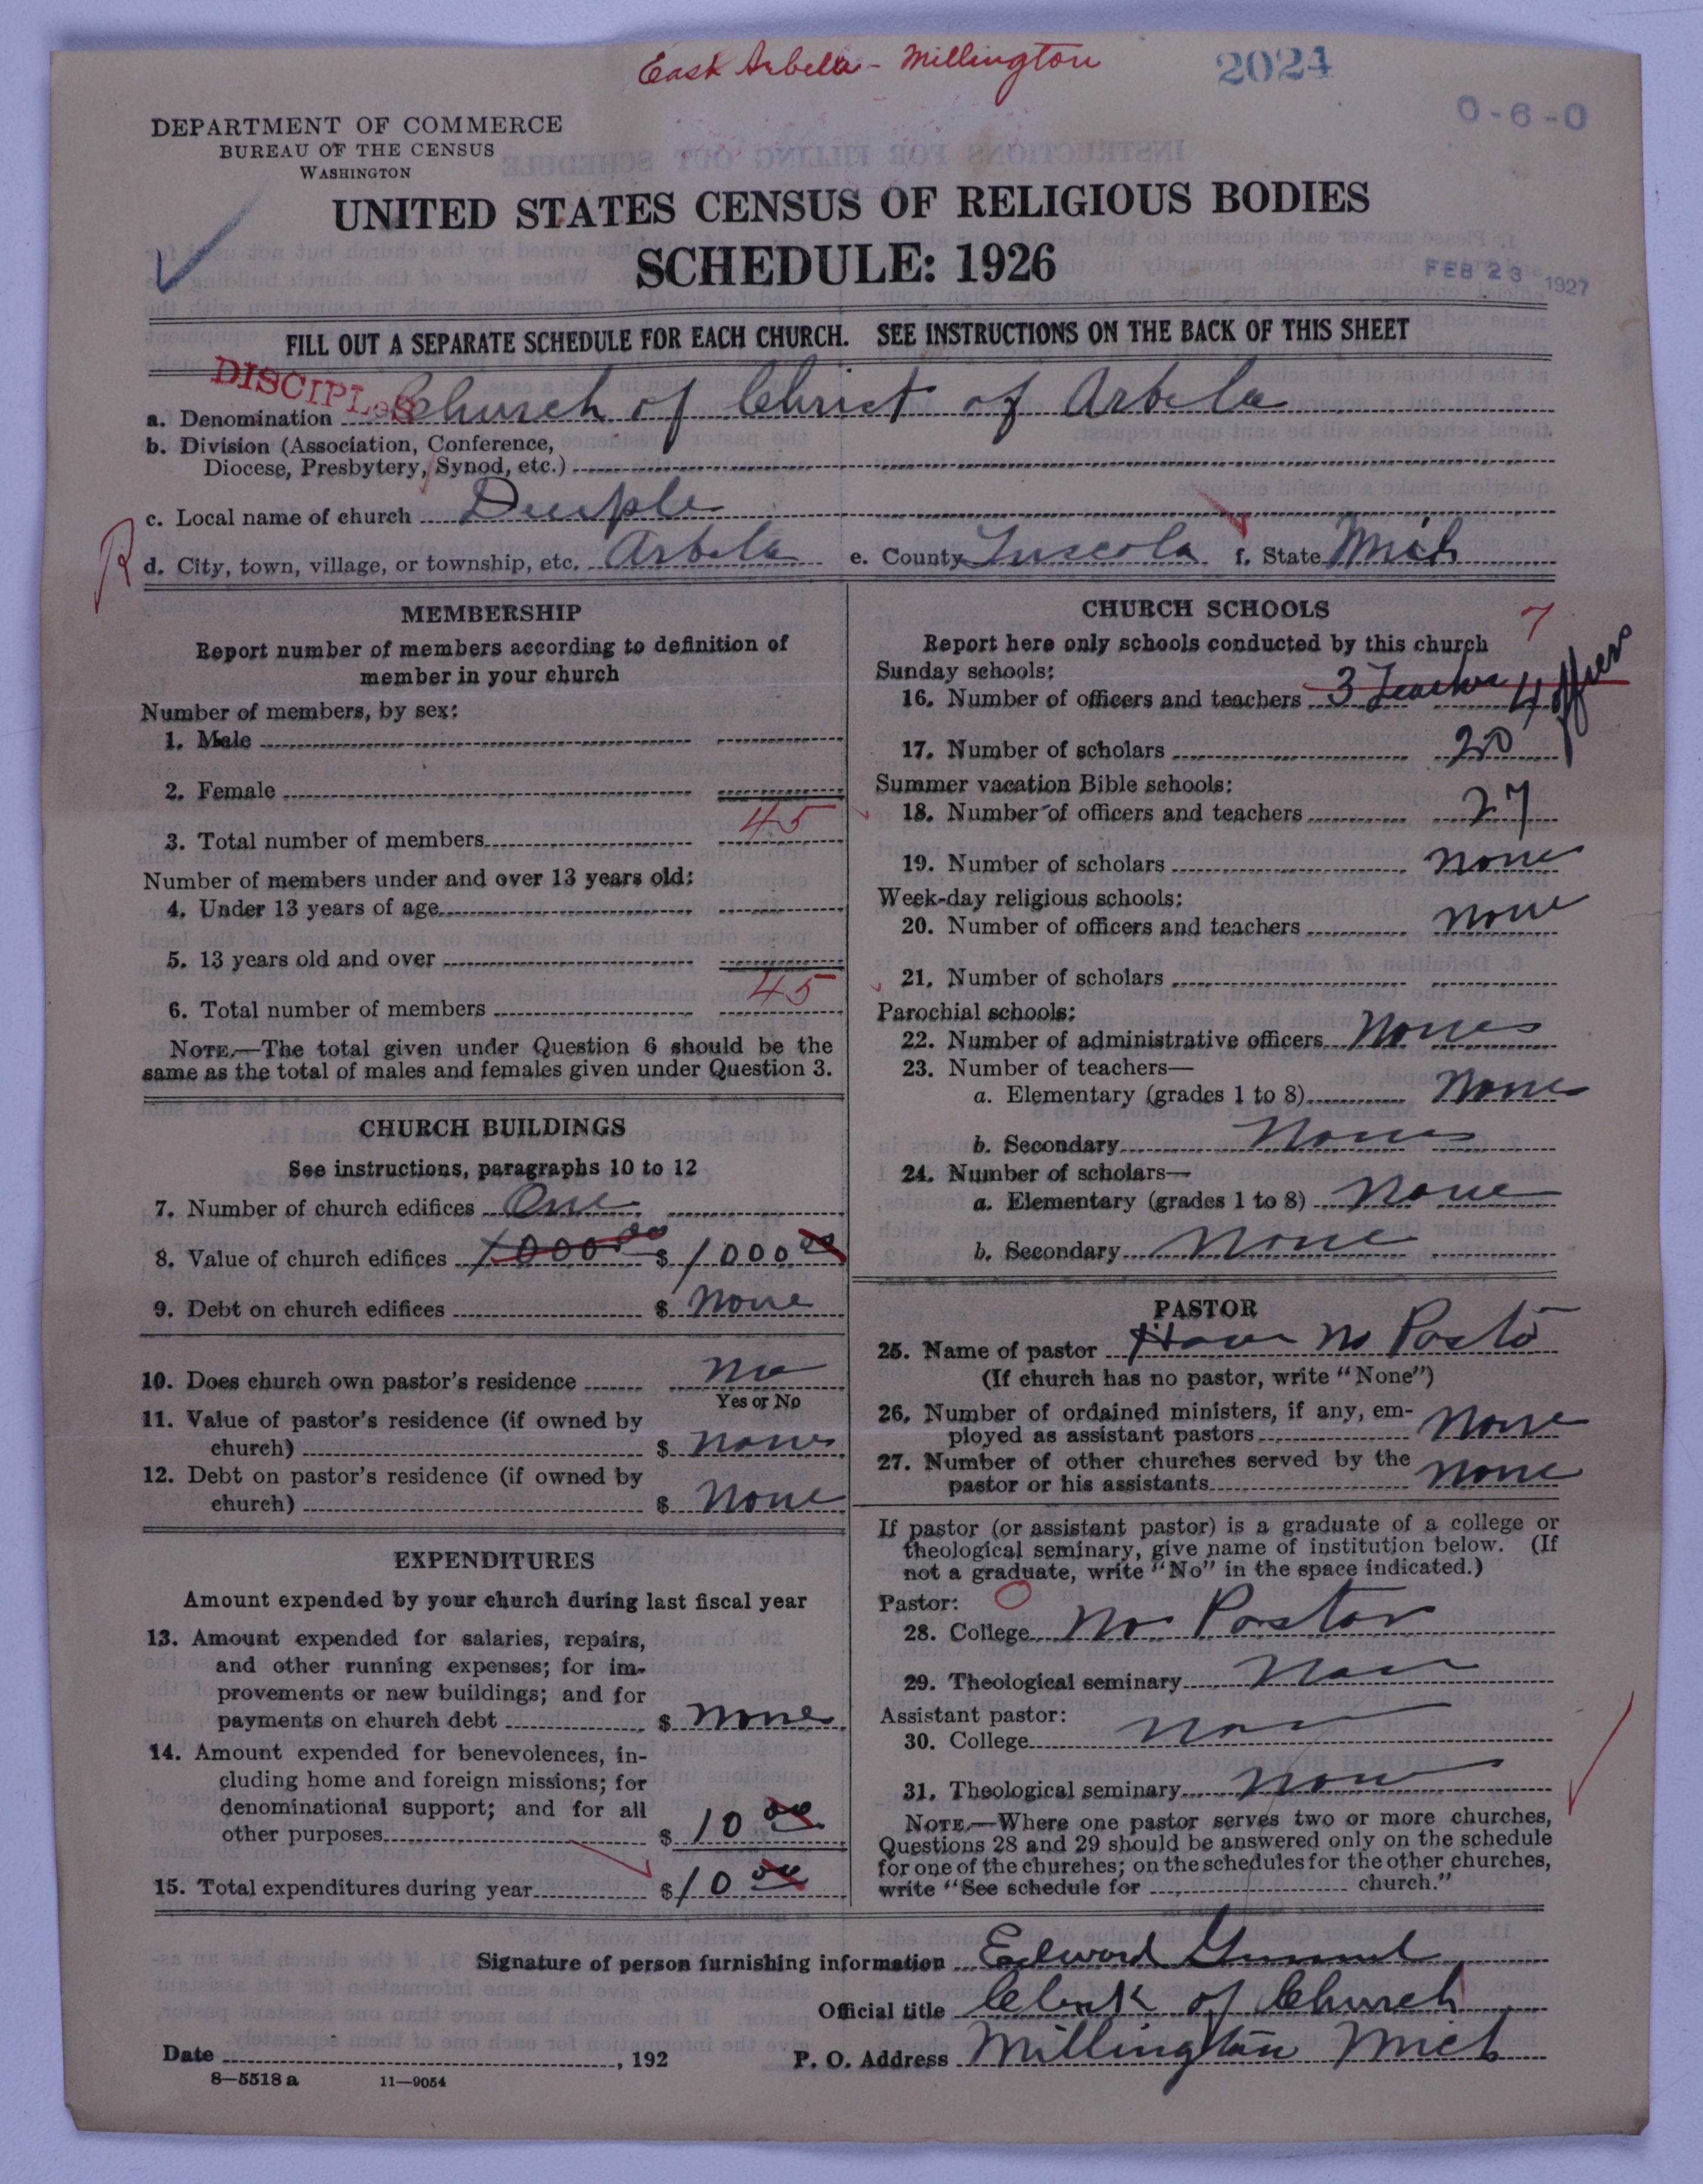 East Arbela - Millington
2024
0-6-0
DEPARTMENT OF COMMERCE
BUREAU OF THE CENSUS
WASHINGTON
UNITED STATES CENSUS OF RELIGIOUS BODIES
SCHEDULE: 1926
FEB 23 1927
FILL OUT A SEPARATE SCHEDULE FOR EACH CHURCH. SEE INSTRUCTIONS ON THE BACK OF THIS SHEET
DISCIPLES
a. Denomination Church of Christ of Arbela
b. Division (Association, Conference,
Diocese, Presbytery, Synod, etc.)
c. Local name of church
R
d. City, town, village, or township, etc. Arbela e. County Tuscola f. State Mich
MEMBERSHIP
Report number of members according to definition of
member in your church
Number of members, by sex:
1. Male
2. Female
3. Total number of members 45
Number of members under and over 13 years old:
4. Under 13 years of age
5. 13 years old and over
6. Total number of members 45
NOTE.—The total given under Question 6 should be the
same as the total of males and females given under Question 3.
CHURCH BUILDINGS
See instructions, paragraphs 10 to 12
7. Number of church edifices One
8. Value of church edifices 1000 00 $ 1000 00
9. Debt on church edifices $ None
10. Does church own pastor's residence No
Yes or No
11. Value of pastor's residence (if owned by
church) $ None
12. Debt on pastor's residence (if owned by
church) $ None
EXPENDITURES
Amount expended by your church during last fiscal year
13. Amount expended for salaries, repairs,
and other running expenses; for im-
provements or new buildings; and for
payments on church debt $ None
14. Amount expended for benevolences, in-
cluding home and foreign missions; for
denominational support; and for all
other purposes $ 10 00
15. Total expenditures during year $ 10 00
CHURCH SCHOOLS
Report here only schools conducted by this church
7
Sunday schools:
16. Number of officers and teachers 3 Teacher 4 offices
17. Number of scholars 20
Summer vacation Bible schools:
18. Number of officers and teachers 27
19. Number of scholars None
Week-day religious schools:
20. Number of officers and teachers None
21. Number of scholars
Parochial schools:
22. Number of administrative officers None
23. Number of teachers—
a. Elementary (grades 1 to 8) None
b. Secondary None
24. Number of scholars—
a. Elementary (grades 1 to 8) None
b. Secondary None
PASTOR
25. Name of pastor Have No Pastor
(If church has no pastor, write "None")
26. Number of ordained ministers, if any, em-
ployed as assistant pastors None
27. Number of other churches served by the
pastor or his assistants None
If pastor (or assistant pastor) is a graduate of a college or
theological seminary, give name of institution below. (If
not a graduate, write "No" in the space indicated.)
Pastor: 0
28. College No Pastor
29. Theological seminary None
Assistant pastor:
30. College None
31. Theological seminary None
NOTE.—Where one pastor serves two or more churches,
Questions 28 and 29 should be answered only on the schedule
for one of the churches; on the schedules for the other churches,
write "See schedule for church."
Signature of person furnishing information Edward
Official title Clerk of Church
Date , 192
P. O. Address Millington Mich
8—5518 a 11—9054